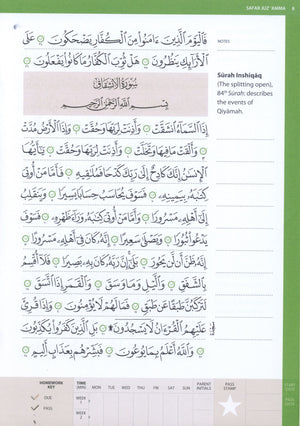 SAFAR JUZ' 'AMMA 8
فَالْيَوْمَ الَّذِينَ ءَامَنُوا۟ مِنَ الْكُفَّارِ يَضْحَكُونَ ۝ عَلَى
الْأَرَآئِكِ يَنظُرُونَ ۝ هَلْ ثُوِّبَ الْكُفَّارُ مَا كَانُوا۟ يَفْعَلُونَ ۝
سُورَةُ الِانْشِقَاقِ
بِسْمِ اللَّهِ الرَّحْمَٰنِ الرَّحِيمِ
إِذَا السَّمَآءُ انشَقَّتْ ۝ وَأَذِنَتْ لِرَبِّهَا وَحُقَّتْ ۝ وَإِذَا الْأَرْضُ مُدَّتْ
۝ وَأَلْقَتْ مَا فِيهَا وَتَخَلَّتْ ۝ وَأَذِنَتْ لِرَبِّهَا وَحُقَّتْ ۝ يَٰٓأَيُّهَا
الْإِنسَٰنُ إِنَّكَ كَادِحٌ إِلَىٰ رَبِّكَ كَدْحًا فَمُلَٰقِيهِ ۝ فَأَمَّا مَنْ أُوتِىَ
كِتَٰبَهُۥ بِيَمِينِهِۦ ۝ فَسَوْفَ يُحَاسَبُ حِسَابًا يَسِيرًا ۝ وَيَنقَلِبُ
إِلَىٰٓ أَهْلِهِۦ مَسْرُورًا ۝ وَأَمَّا مَنْ أُوتِىَ كِتَٰبَهُۥ وَرَآءَ ظَهْرِهِۦ ۝ فَسَوْفَ
يَدْعُوا۟ ثُبُورًا ۝ وَيَصْلَىٰ سَعِيرًا ۝ إِنَّهُۥ كَانَ فِىٓ أَهْلِهِۦ مَسْرُورًا ۝
إِنَّهُۥ ظَنَّ أَن لَّن يَحُورَ ۝ بَلَىٰٓ إِنَّ رَبَّهُۥ كَانَ بِهِۦ بَصِيرًا ۝ فَلَآ أُقْسِمُ
بِالشَّفَقِ ۝ وَالَّيْلِ وَمَا وَسَقَ ۝ وَالْقَمَرِ إِذَا اتَّسَقَ ۝
لَتَرْكَبُنَّ طَبَقًا عَن طَبَقٍ ۝ فَمَا لَهُمْ لَا يُؤْمِنُونَ ۝ وَإِذَا قُرِئَ
عَلَيْهِمُ الْقُرْءَانُ لَا يَسْجُدُونَ ۩ ۝ بَلِ الَّذِينَ كَفَرُوا۟ يُكَذِّبُونَ
۝ وَاللَّهُ أَعْلَمُ بِمَا يُوعُونَ ۝ فَبَشِّرْهُم بِعَذَابٍ أَلِيمٍ ۝
NOTES
Sūrah Inshiqāq
(The splitting open),
84th Sūrah: describes
the events of
Qiyāmah.
HOMEWORK KEY
DUE
PASS
TIME (MIN) MON TUE WED THU FRI SAT SUN PARENT INITIALS PASS STAMP
WEEK 1
WEEK 2
START DATE
PASS DATE